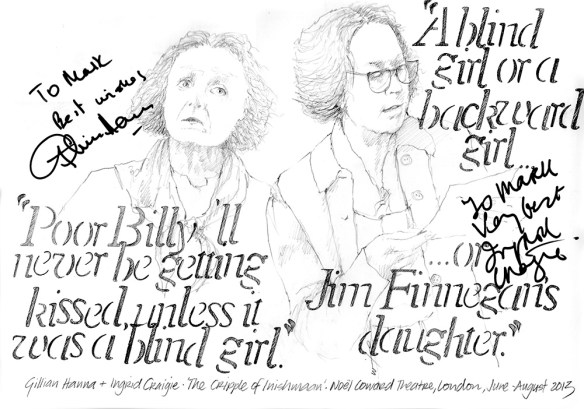 To Mark
Best wishes
"Poor Billy 'll
never be getting
kissed, unless it
was a blind girl."
"A blind
girl or a
backward
girl ...
To Mark
Very best
Ingrid
Craigie.
...or
Jim Finnegans
daughter."
Gillian Hanna + Ingrid Craigie · 'The Cripple of Inishmaan'. Noël Coward Theatre, London, June - August 2013